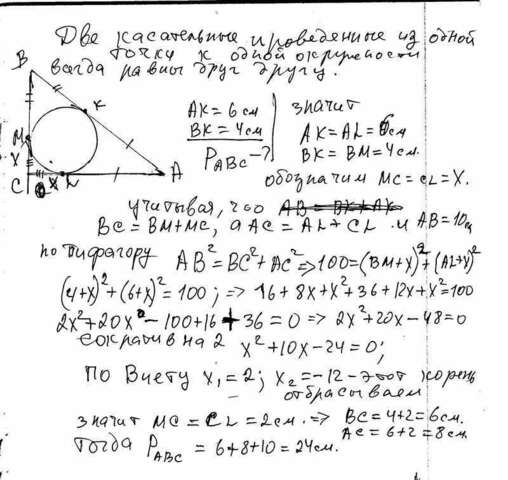 Две касательные проведенные из одной
точки к одной окружности
всегда равны друг другу.
B
K
M
X
C
X
L
A
AK = 6 см
BK = 4 см
P ABC - ?
значит
AK = AL = 6 см
BK = BM = 4 см.
обозначим MC = CL = X.
учитывая, что
BC = BM + MC, а AC = AL + CL и AB = 10 см
по Пифагору AB² = BC² + AC² => 100 = (BM+X)² + (AL+X)²
(4+X)² + (6+X)² = 100; => 16 + 8X + X² + 36 + 12X + X² = 100
2X² + 20X - 100 + 16 + 36 = 0 => 2X² + 20X - 48 = 0
сократив на 2 X² + 10X - 24 = 0;
По Виету X₁ = 2; X₂ = -12 - этот корень
отбрасываем
значит MC = CL = 2 см. => BC = 4+2 = 6 см.
AC = 6+2 = 8 см
Тогда P ABC = 6+8+10 = 24 см.